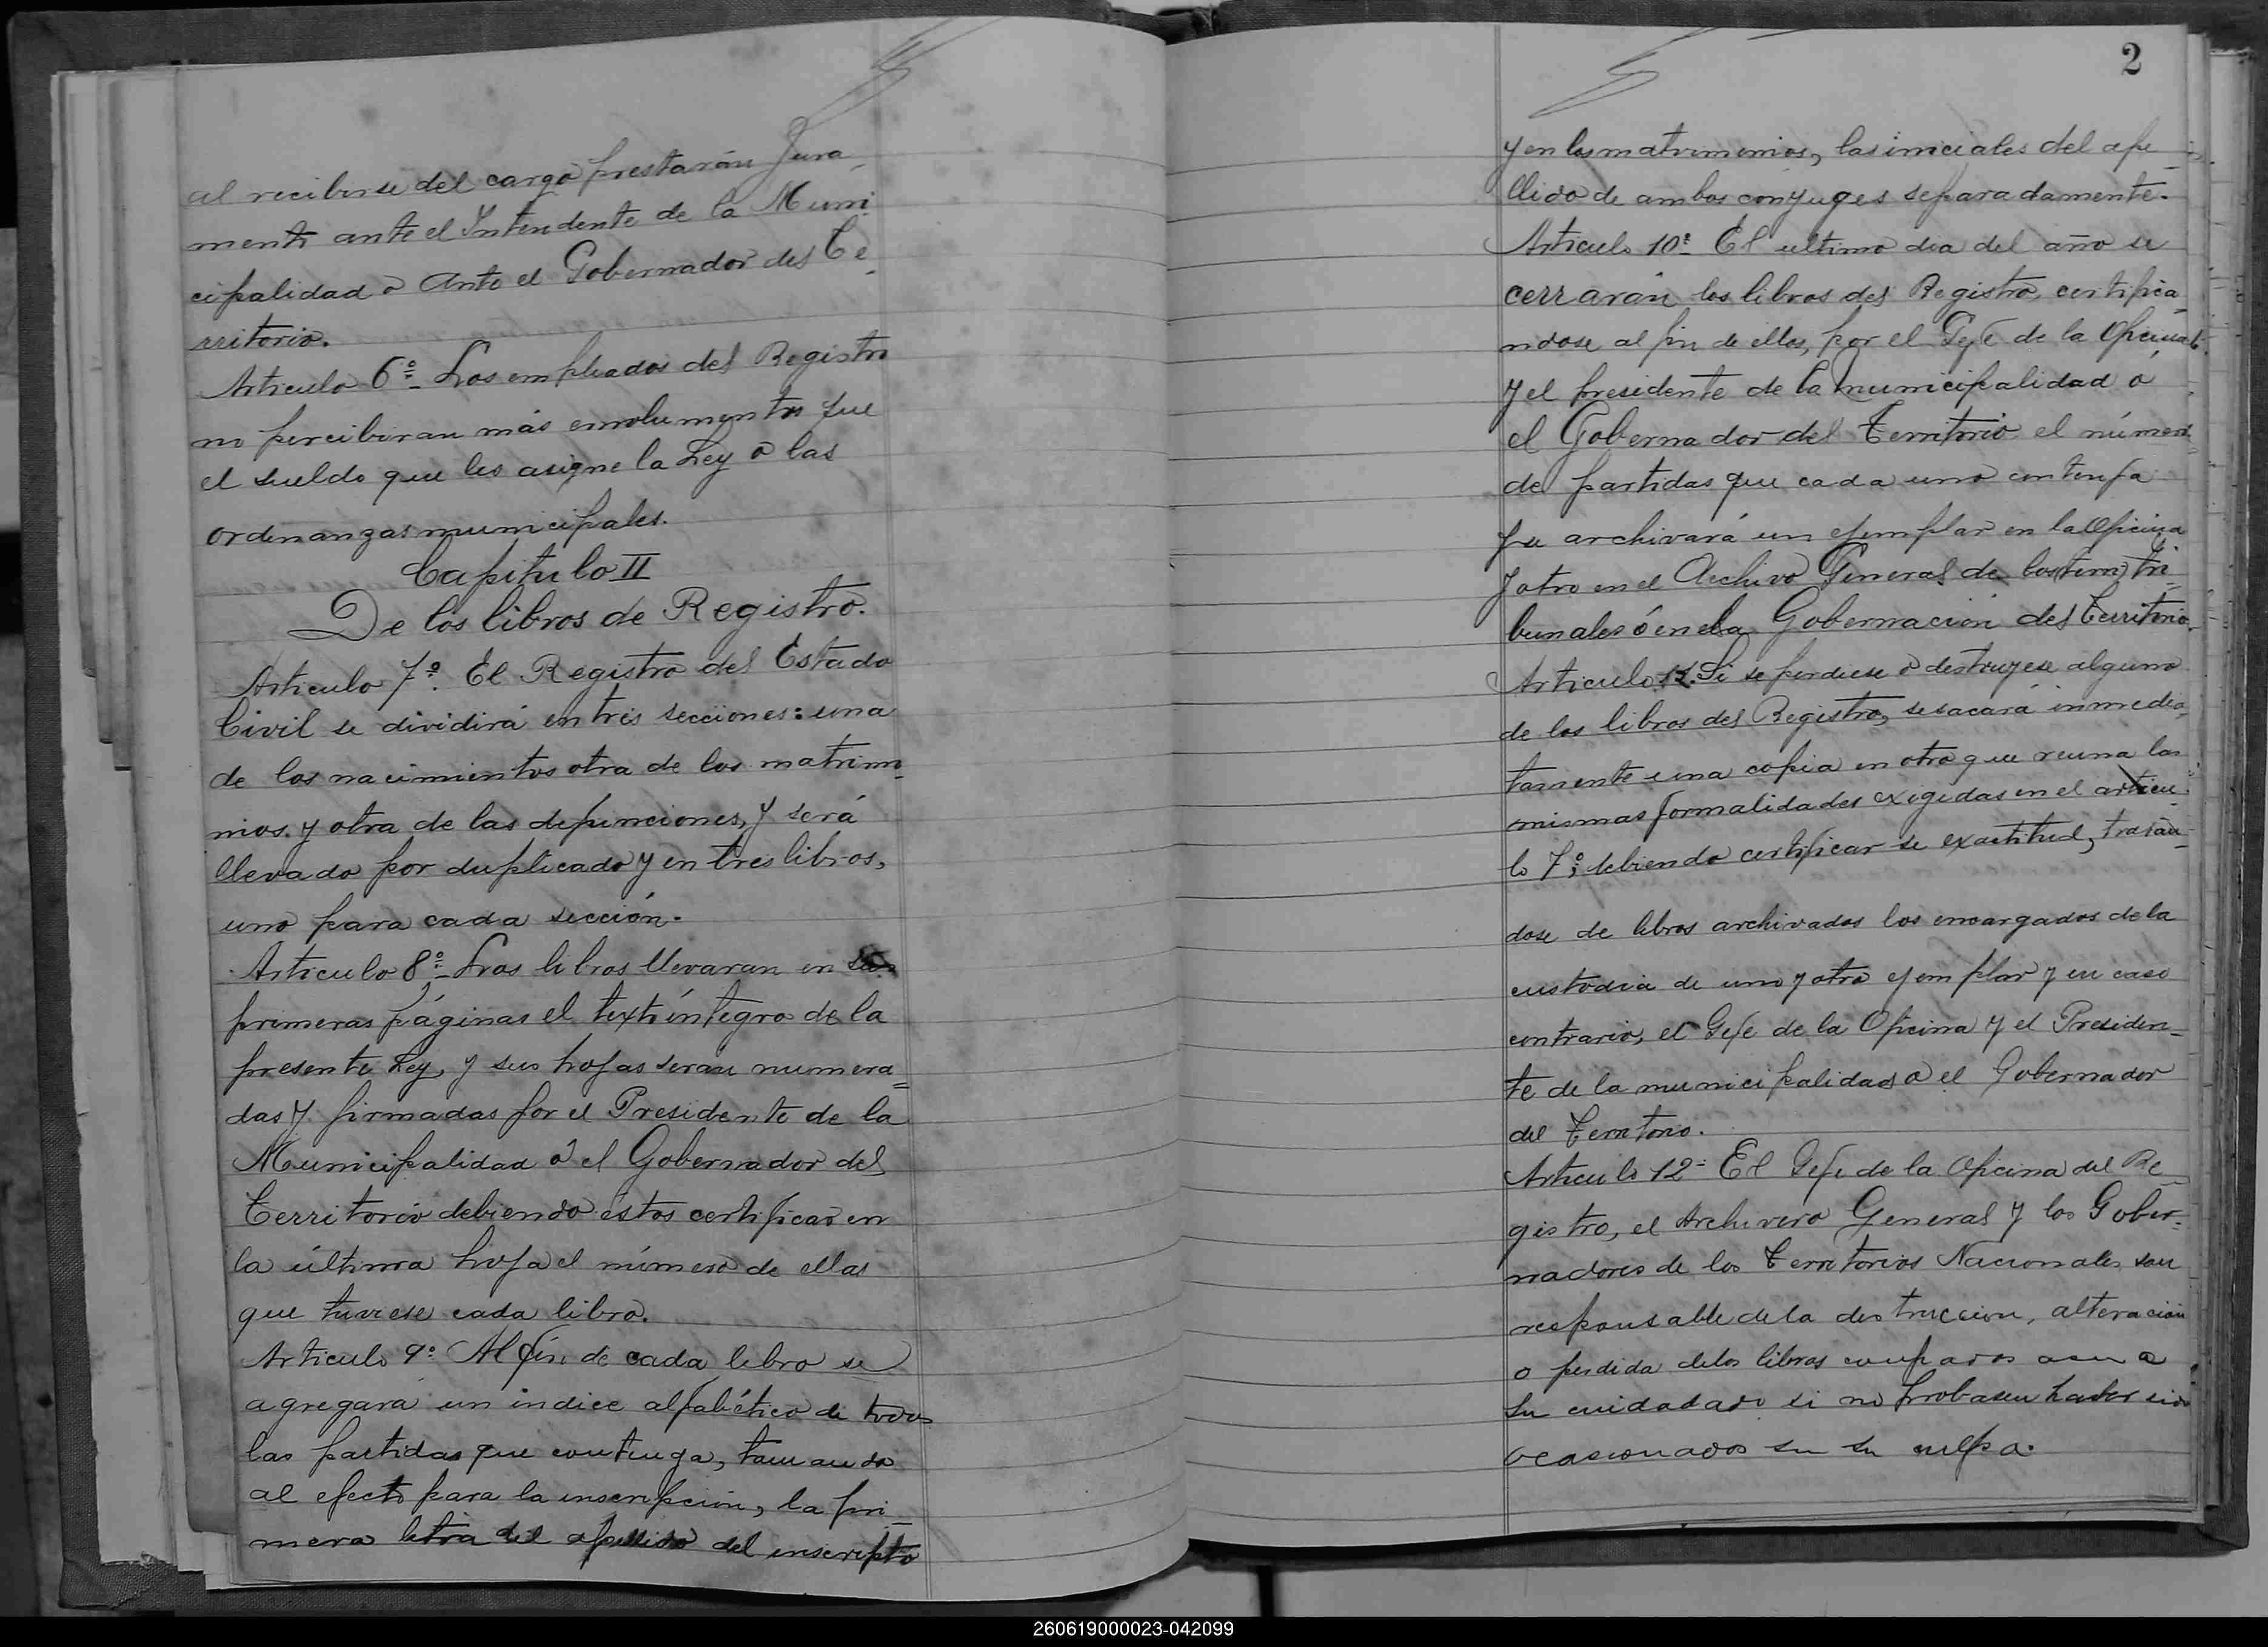 al recibirse del cargo prestarán Jura
mento ante el Intendente de la Muni
cipalidad o Ante el Gobernador del Te
rritorio.
Articulo 6º Los empleados del Registro
no percibiran más emolumentos que
el sueldo que les asigne la Ley o las
ordenanzas municipales.
Capitulo II
De los libros de Registro.
Articulo 7º. El Registro del Estado
Civil se dividirá en tres secciones: una
de los nacimientos otra de los matrimo
nios y otra de las defunciones, y será
llevado por duplicado y en tres libros,
uno para cada sección.
Articulo 8º Los libros llevaran en sus
primeras páginas el texto íntegro de la
presente Ley, y sus hojas serán numera=
das y firmadas por el Presidente de la
Municipalidad o el Gobernador del
Territorio debiendo éstos certificar en
la última hoja el número de ellas
que tuviese cada libro.
Articulo 9º Al fin de cada libro se
agregará un indice alfabético de todas
las partidas que contenga, tomando
al efecto para la inscripción, la pri_
mera letra del apellido del inscripto
2
y en los matrimonios, las iniciales del ape
llido de ambos conyuges separadamente.
Articulo 10º El ultimo dia del año se
cerrarán los libros del Registro, certifica
ndose al fin de ellos, por el Gefe de la Oficina
y el presidente de la municipalidad o
el Gobernador del Territorio el número
de partidas que cada uno contenga
y se archivará un ejemplar en la Oficina
y otro en el Archivo General de los tri
bunales ó en la Gobernación del Territorio
Articulo 11. Si se perdiese o destruyese alguno
de los libros del Registro, se sacará inmedia
tamente una copia en otro que reuna las
mismas formalidades exigidas en el articu
lo 7º, debiendo certificar su exactitud, tratan_
dose de libros archivados los encargados de la
custodia de uno y otro ejemplar y en caso
contrario, el Gefe de la Oficina y el Presiden_
te de la municipalidad o el Gobernador
del Territorio.
Articulo 12º El Gefe de la Oficina del Re
gistro, el Archivero General y los Gober=
nadores de los Territorios Nacionales son
responsable de la destruccion, alteracion
o perdida de los libros a
su cuidadado si no probasen haber sido
ocasionados sin su culpa.
260619000023-042099